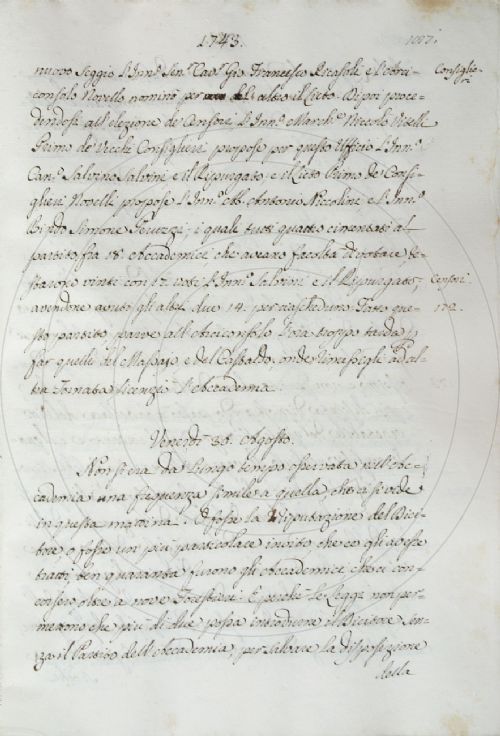 1743.
nuovo Seggio l'Inno. Sen. Cav. Gio. Francesco Ricasoli, e l'Arci-
Consiglie-
ri
consolo Novello nominò per altro il Lieto. Dipoi proce-
dendosi all'elezione de' Censori, l'Inno. March. Niccolò Vitelli
Primo de' Vecchi Consiglieri propose per questo Uffizio l'Inno.
Can. Salvino Salvini e il Ripurgato, e il Lieto Primo de' Consi-
glieri Novelli propose l'Inno. Ab. Antonio Niccolini e l'Inno.
Bindo Simone Peruzzi, i quali tutti quattro cimentati al
partito fra 18. Accademici che avean facoltà di votare, re-
starono vinti con 17. voti l'Inno. Salvini e il Ripurgato,
Censori.
avendone avuto gli altri due 14. per ciascheduno. Fatto que-
172.
sto partito parve all'Arciconsolo l'ora troppo tarda p
far quelli del Massaio, e del Castaldo, onde a al-
tra Tornata licenziò l'Accademia.
Venerdì 30. Agosto.
Non si era da lungo tempo osservata nell'Ac-
cademia una frequenza simile a quella che si vide
in questa mattina. O fosse la Reputazione del Dici-
tore, o fosse un più particolare invito che ce gli avesse
tratti, ben quaranta furono gli Accademici che ci con-
corsero oltre a nove Forestieri. E perchè le Leggi non per-
mettono che più di due possa introdurre il Dicitore sen-
za il Partito dell'Accademia, per salvare la disposizione
della